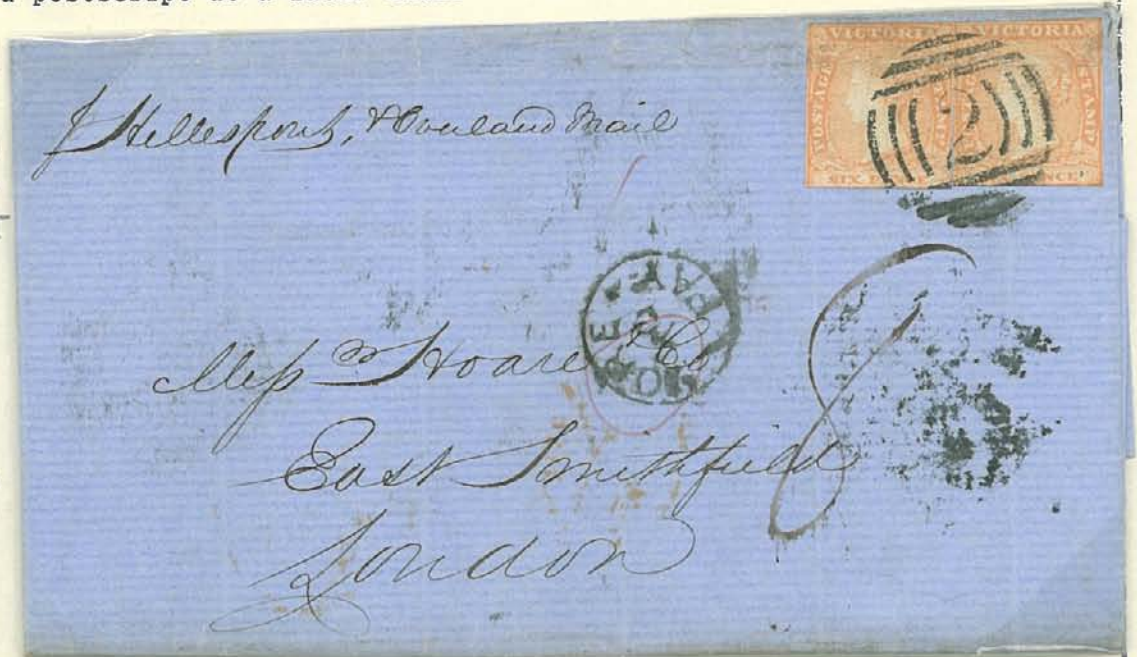 a postscript at a
VICTORIA VICTORIA
POSTAGE STAMP
SIX
2
p Hellespont, & Overland Mail
Mess rs Hoare & Co
East Smithfield
London